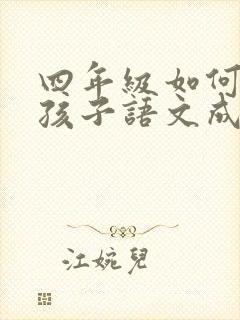 四年級如何
孩子語文成
江婉兒